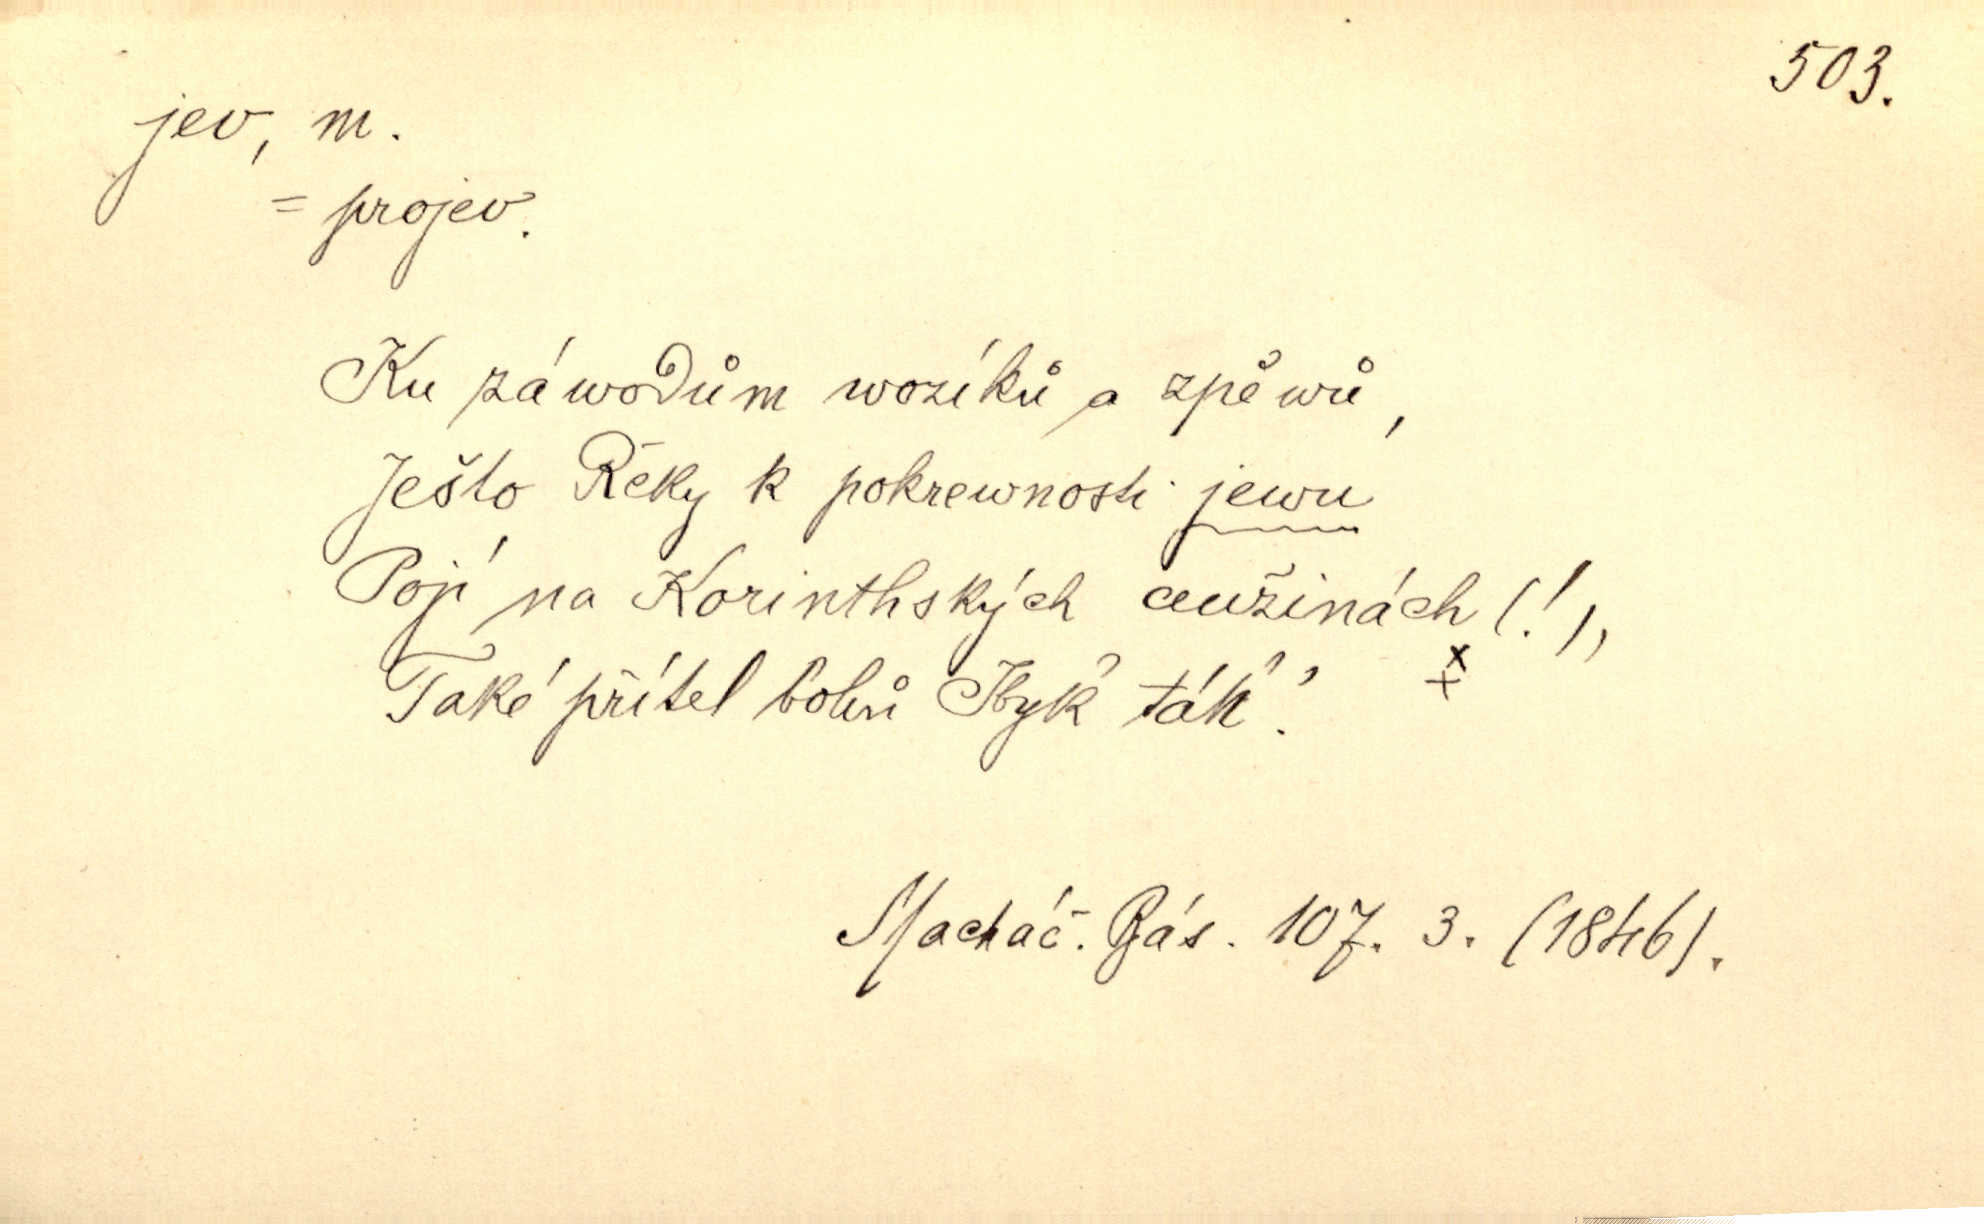 503.
jev, m.
= projev.
Ku záwodům wozíků a zpěwů,
Ješto Řeky k pokrewnosti jewu
Pojí na Korinthských aužinách (!),
Také přítel bohů Ibyk' táh'.
Macháč. Bás. 107. 3. (1846).